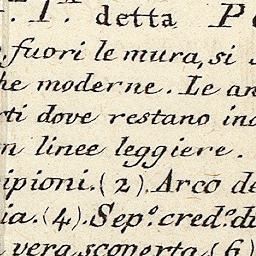 detta
fuori le mura, si
he moderne. Le an
rti dove restano ind
n linee leggiere.
ipioni. (2). Arco de
ia. (4). Sep.º cred.º di
vera, scoperta (6)